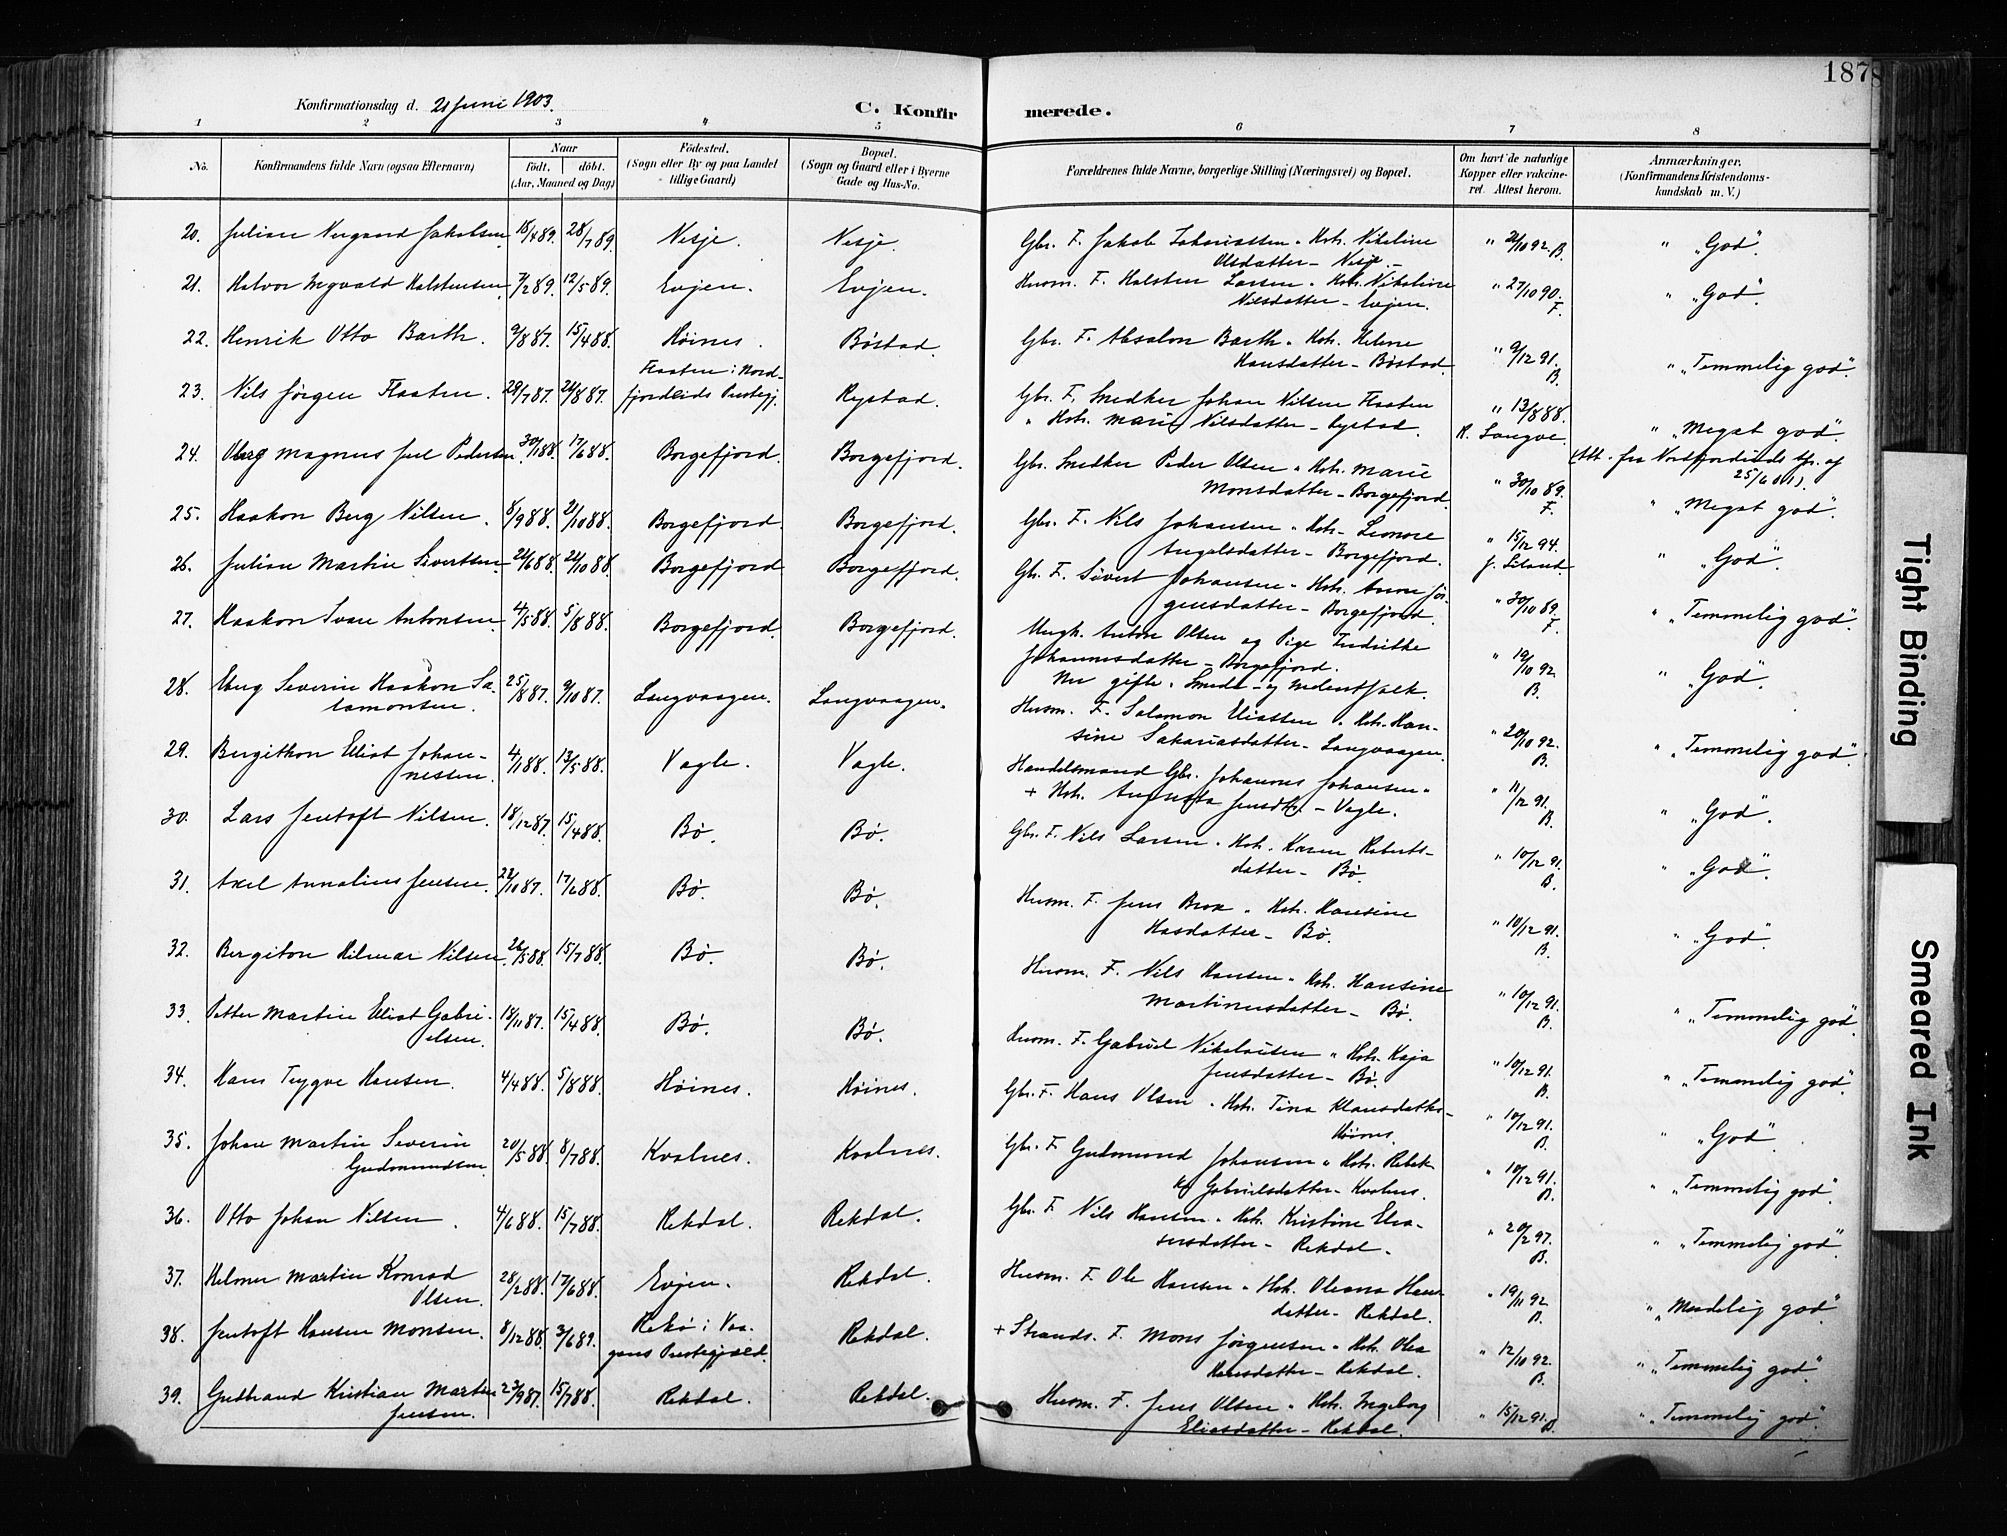 187
Konfirmationsdag d. 21 Juni 1903.
C. Konfirmerede.
1 2 3 4 5 6 7 8
No. Konfirmandens fulde Navn (ogsaa Efternavn) Naar født. døbt. (Aar, Maaned og Dag) Fødested. (Sogn eller By og paa Landet tillige Gaard) Bopæl. (Sogn og Gaard eller i Byerne Gade og Hus-No. Forældrenes fulde Navne, borgerlige Stilling (Næringsvei) og Bopæl. Om havt de naturlige Kopper eller vakcineret. Attest herom. Anmærkninger. (Konfirmandens Kristendomskundskab m. V.)
20. Julian Jakobsen 18/4 89. 28/7 89. Nesje. Nesje. Gbr. F. Jakob " Hst. Nikoline Olsdatter – Nesje. " 21/10 92. B. " "God".
21. Halvor Ingvald Halstensen 7/2 89. 12/5 89. Evjen. Evjen. Husm. F. Halsten Larsen " Hst. Nikoline Nilsdatter – Evjen. " 27/10 90. F. " "God".
22. Henrik Otto Barth. 9/8 87. 15/4 88. Høines. Bøstad. Gbr. F. Absalon Barth " Hst. Helene Hansdatter – Bøstad. " 9/12 91. B. " "Temmelig god".
23. Nils Jørgen Flaaten. 28/7 87. 21/8 87. Flaaten i Nordfjordeids Prestegj. Rystad. Gbr. F. Snedker Johan Nilsen Flaaten " Hst. Marie Nilsdatter – Rystad. " 13/8 88. " "Meget god".
(Att. fra Nordfjordeids af 25/6 01).
24. Magnus Juel Pedersen 30/1 88. 17/6 88. Borgefjord. Borgefjord. Gbr. Snedker Peder Olsen " Hst. Marie Monsdatter – Borgefjord. " 30/10 89. F. " "Meget god".
25. Haakon Berg Nilsen. 8/9 88. 21/10 88. Borgefjord. Borgefjord. Gbr. F. Nils Johansen " Hst. Leonore Angelsdatter – Borgefjord. " 15/12 94. " "God".
26. Julian Martin Sivertsen 24/6 88. 21/10 88. Borgefjord Borgefjord. Gbr. F. Sivert Johansen " Hst. Anne Jørgensdatter – Borgefjord. " 30/10 89. F. " "Temmelig god".
27. Haakon Svan Antonsen 4/5 88. 5/8 88. Borgefjord. Borgefjord. Ungk. Anton Olsen og Pige Indrikke Johannesdatter – Borgefjord. Nu gifte. " 19/10 92. B. " "God".
28. Severin Haakon Salamonsen. 25/8 87. 9/10 87. Langvaagen. Langvaagen. Husm. F. Salamon Eliassen " Hst. Hansine Sakariasdatter – Langvaagen. " 20/10 92. B. " "Temmelig god".
29. Bergithon Eliot Johannessen. 4/1 88. 13/5 88. Vagle. Vagle. Handelsmand Gbr. Johannes Johansen " + Hst. Augusta Jensdtr – Vagle. " 11/12 91. B. " "God".
30. Lars Jentoft Nilsen. 18/12 87. 15/4 88. Bø. Bø. Gbr. F. Nils Larsen " Hst. Karen Robertsdatter – Bø. " 10/12 91. B. " "God".
31. Axel Annalius Jensen. 22/10 87. 17/6 88. Bø. Bø. Husm. F. Jens " Hst. Hansine Hasdatter – Bø. " 10/12 91. B. " "God".
32. Bergiton Hilmar Nilsen. 26/5 88. 15/7 88. Bø. Bø. Husm. F. Nils Hansen " Hst. Hansine Martinusdatter – Bø. " 10/12 91. B. " "Temmelig god".
33. Petter Martin Eliot Gabrielsen. 18/11 87. 15/4 88. Bø. Bø. Husm. F. Gabriel Nikolaisen " Hst. Kaja Jensdatter – Bø. " 10/12 91. B. " "Temmelig god".
34. Hans Trygve Hansen. 4/4 88. 5/8 88. Høines. Høines. Gbr. F. Hans Olsen " Hst. Tina Klausdatter – Høines. " 10/12 91. B. " "God".
35. Johan Martin Severin Gudmundsen 20/5 88. 8/7 88. Kvalnes. Kvalnes. Gbr. F. Gudmund Johansen " Hst. Rebekka Gabrielsdatter – Kvalnes. " 10/12 91. B. " "Temmelig god".
36. Otto Johan Nilsen. 4/6 88. 15/7 88. Rekdal. Rekdal. Gbr. F. Nils Hansen " Hst. Kristine – Rekdal. " 20/2 97. B. " "Temmelig god".
37. Helmer Martin Konrad Olsen. 28/2 88. 17/6 88. Evjen. Rekdal. Husm. F. Ole Hansen " Hst. Oleana Hansdatter – Rekdal. " 19/11 92. B. " "Maadelig god".
38. Jentoft Hansen Monsen. 8/12 88. 3/6 89. Rekø i Vaagans Prestegjæld. Rekdal. + Strands. F. Mons Jørgensen " Hst. Olea Hansdatter – Rekdal. " 12/10 92. B. " "Temmelig god".
39. Gudbrand Kristian Martin Jensen. 23/9 87. 15/7 88. Rekdal. Rekdal. Husm. F. Jens Olsen " Hst. Ingeborg Eliasdatter – Rekdal. " 15/12 91. B. " "Temmelig god".
Tight Binding
Smeared Ink